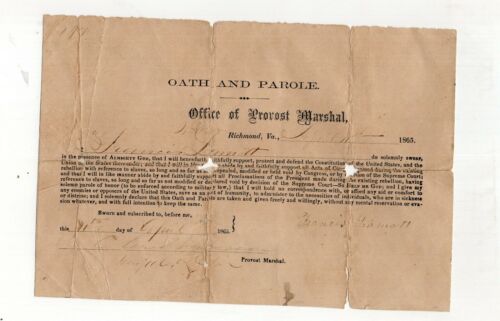 OATH AND PAROLE.
Office of Provost Marshal,
Richmond, Va., 1865.
I, Francis do solemnly swear,
in the presence of ALMIGHTY GOD, that I will henceforth faithfully support, protect and defend the Constitution of the United States, and the
Union of the States thereunder; and that I will in like manner abide by and faithfully support all Acts of Congress passed during the existing
rebellion with reference to slaves, so long and so far as not repealed, modified or held void by Congress, or by decision of the Supreme Court
and that I will in like manner abide by and faithfully support all Proclamations of the President made during the existing rebellion, having
reference to slaves, so long and so far as not modified or declared void by decision of the Supreme Court—SO HELP ME GOD; and I give my
solemn parole of honor (to be enforced according to military law,) that I will hold no correspondence with, or afford any aid or comfort to
any enemies or opposers of the United States, save as an act of humanity, to administer to the necessities of individuals, who are in sickness
or distress; and I solemnly declare that this Oath and Parole are taken and given freely and willingly, without any mental reservation or eva-
sion whatever, and with full intention to keep the same.
Sworn and subscribed to, before me,
this day of April 1865.
Francis
Provost Marshal.